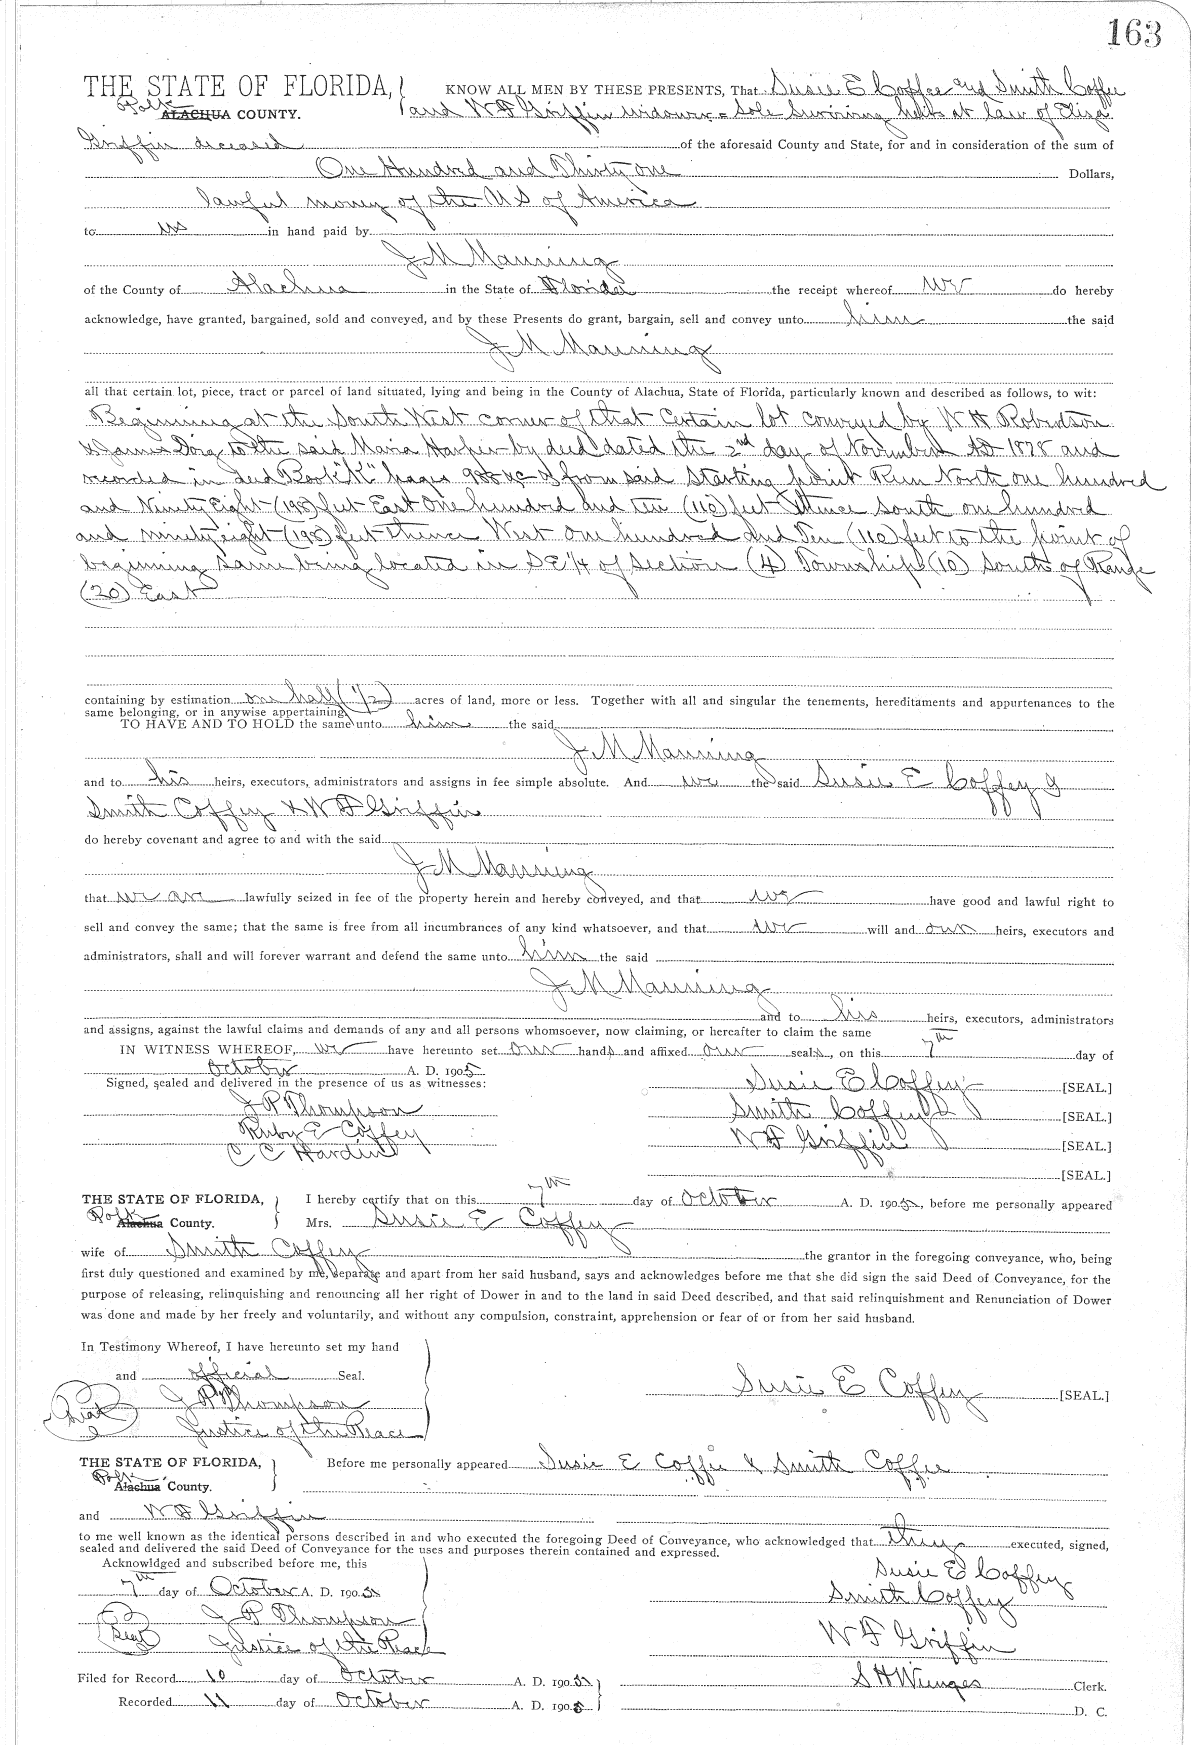 163
THE STATE OF FLORIDA, KNOW ALL MEN BY THESE PRESENTS, That Susie E Coffee and Smith Coffee
Polk ALACHUA COUNTY. and W F Griffin widower - Sole Surviving heirs at law of Eliza
Griffin deceased of the aforesaid County and State, for and in consideration of the sum of
One Hundred and Thirty one Dollars,
lawful money of the U S of America
to us in hand paid by
J M Manning
of the County of Alachua in the State of Florida the receipt whereof we do hereby
acknowledge, have granted, bargained, sold and conveyed, and by these Presents do grant, bargain, sell and convey unto him the said
J M Manning
all that certain lot, piece, tract or parcel of land situated, lying and being in the County of Alachua, State of Florida, particularly known and described as follows, to wit:
Beginning at the South West corner of that Certain lot conveyed by W H Robertson
& James Doig to the said Maria Harper by deed dated the 2nd day of November AD 1878 and
recorded in deed Book "K" pages from said starting point Run North one hundred
and Ninety Eight (198) feet East One hundred and ten (110) feet thence south one hundred
and ninety eight (198) feet thence West One hundred and Ten (110) feet to the point of
beginning same being located in S E 1/4 of Section (4) Township (10) South of Range
(20) East
containing by estimation one half (1/2) acres of land, more or less. Together with all and singular the tenements, hereditaments and appurtenances to the
same belonging, or in anywise appertaining.
TO HAVE AND TO HOLD the same unto him the said
J M Manning
and to his heirs, executors, administrators and assigns in fee simple absolute. And we the said Susie E Coffey
Smith Coffey & W F Griffin
do hereby covenant and agree to and with the said
J M Manning
that we are lawfully seized in fee of the property herein and hereby conveyed, and that we have good and lawful right to
sell and convey the same; that the same is free from all incumbrances of any kind whatsoever, and that we will and our heirs, executors and
administrators, shall and will forever warrant and defend the same unto him the said
J M Manning
and to his heirs, executors, administrators
and assigns, against the lawful claims and demands of any and all persons whomsoever, now claiming, or hereafter to claim the same
IN WITNESS WHEREOF, we have hereunto set our hands and affixed our seals, on this 7th day of
October A. D. 1905
Signed, sealed and delivered in the presence of us as witnesses: Susie E Coffey [SEAL.]
J P Thompson Smith Coffey [SEAL.]
Ruby E Coffey W F Griffin [SEAL.]
C C Hardin [SEAL.]
THE STATE OF FLORIDA, I hereby certify that on this 7th day of October A. D. 1905, before me personally appeared
Polk Alachua County. Mrs. Susie E Coffey
wife of Smith Coffey the grantor in the foregoing conveyance, who, being
first duly questioned and examined by me, separate and apart from her said husband, says and acknowledges before me that she did sign the said Deed of Conveyance, for the
purpose of releasing, relinquishing and renouncing all her right of Dower in and to the land in said Deed described, and that said relinquishment and Renunciation of Dower
was done and made by her freely and voluntarily, and without any compulsion, constraint, apprehension or fear of or from her said husband.
In Testimony Whereof, I have hereunto set my hand
and official Seal. Susie E Coffey [SEAL.]
Seal J P Thompson
Justice of the Peace
THE STATE OF FLORIDA, Before me personally appeared Susie E Coffie & Smith Coffie
Polk Alachua County.
and W F Griffin
to me well known as the identical persons described in and who executed the foregoing Deed of Conveyance, who acknowledged that they executed, signed,
sealed and delivered the said Deed of Conveyance for the uses and purposes therein contained and expressed.
Acknowldged and subscribed before me, this Susie E Coffey
7th day of October A. D. 1905 Smith Coffey
Seal J P Thompson W F Griffin
Justice of the Peace
Filed for Record 10 day of October A. D. 1905 S H Wienges Clerk.
Recorded 11 day of October A. D. 1905 D. C.